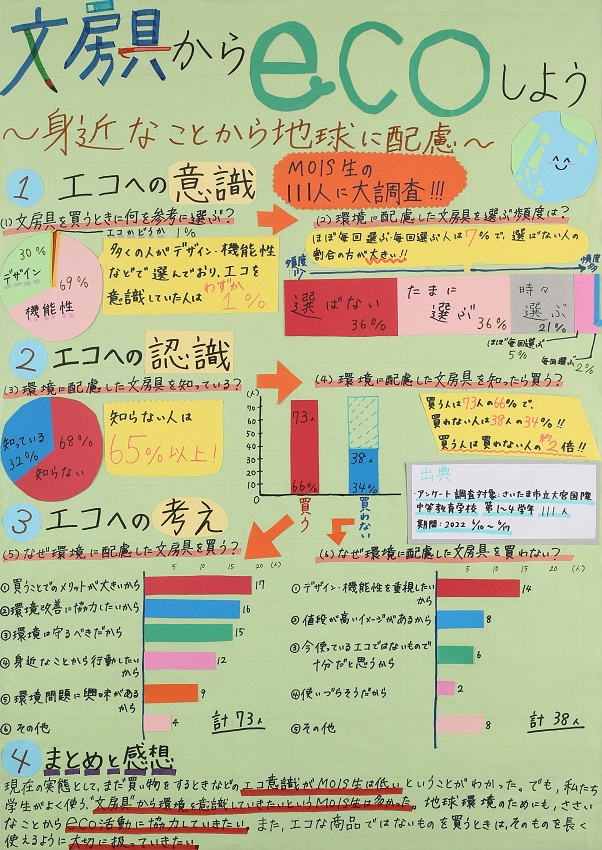 文房具からecoしよう
～身近なことから地球に配慮～
1 エコへの意識
MOIS生の
111人に大調査!!!
(1)文房具を買うときに何を参考に選ぶ?
エコかどうか 1%
30%
デザイン
69%
機能性
多くの人がデザイン・機能性
などで選んでおり、エコを
意識していた人はわずか
1%
(2)環境に配慮した文房具を選ぶ頻度は?
ほぼ毎回選ぶ・毎回選ぶ人は7%で、選ばない人の
割合の方が大きい!!
頻度少
頻度多
選ばない
36%
たまに
選ぶ 36%
時々
選ぶ
21%
ほぼ毎回選ぶ
5%
毎回選ぶ 2%
2 エコへの認識
(3)環境に配慮した文房具を知っている?
知っている
32%
68%
知らない
知らない人は
65%以上!
(4)環境に配慮した文房具を知ったら買う?
(人)
80
70
60
50
40
30
20
10
0
73人
66%
買う
38人
34%
買わない
買う人は73人の66%で、
買わない人は38人の34%!!
買う人は買わない人の約2倍!!
出典
・アンケート調査対象:さいたま市立大宮国際
中等教育学校 第1~4学年 111人
期間:2022
3 エコへの考え
(5)なぜ環境に配慮した文房具を買う?
5 10 15 20 (人)
①買うことでのメリットが大きいから 17
②環境改善に協力したいから 16
③環境は守るべきだから 15
④身近なことから行動したい
から 12
⑤環境問題に興味がある
から 9
⑥その他 4
計73人
(6)なぜ環境に配慮した文房具を買わない?
5 10 15 20 (人)
①デザイン・機能性を重視したい
から 14
②値段が高いイメージがあるから 8
③今使っているエコではないもので
十分だと思うから 6
④使いづらそうだから 2
⑤その他 8
計38人
4 まとめと感想
現在の実態として、まだ買い物をするときなどのエコ意識がMOIS生は低いということがわかった。でも、私たち
学生がよく使う、"文房具"から環境を意識していきたいというMOIS生は多かった。地球環境のためにも、ささい
なことからeco活動に協力していきたい。また、エコな商品ではないものを買うときは、そのものを長く
使えるように大切に扱っていきたい。